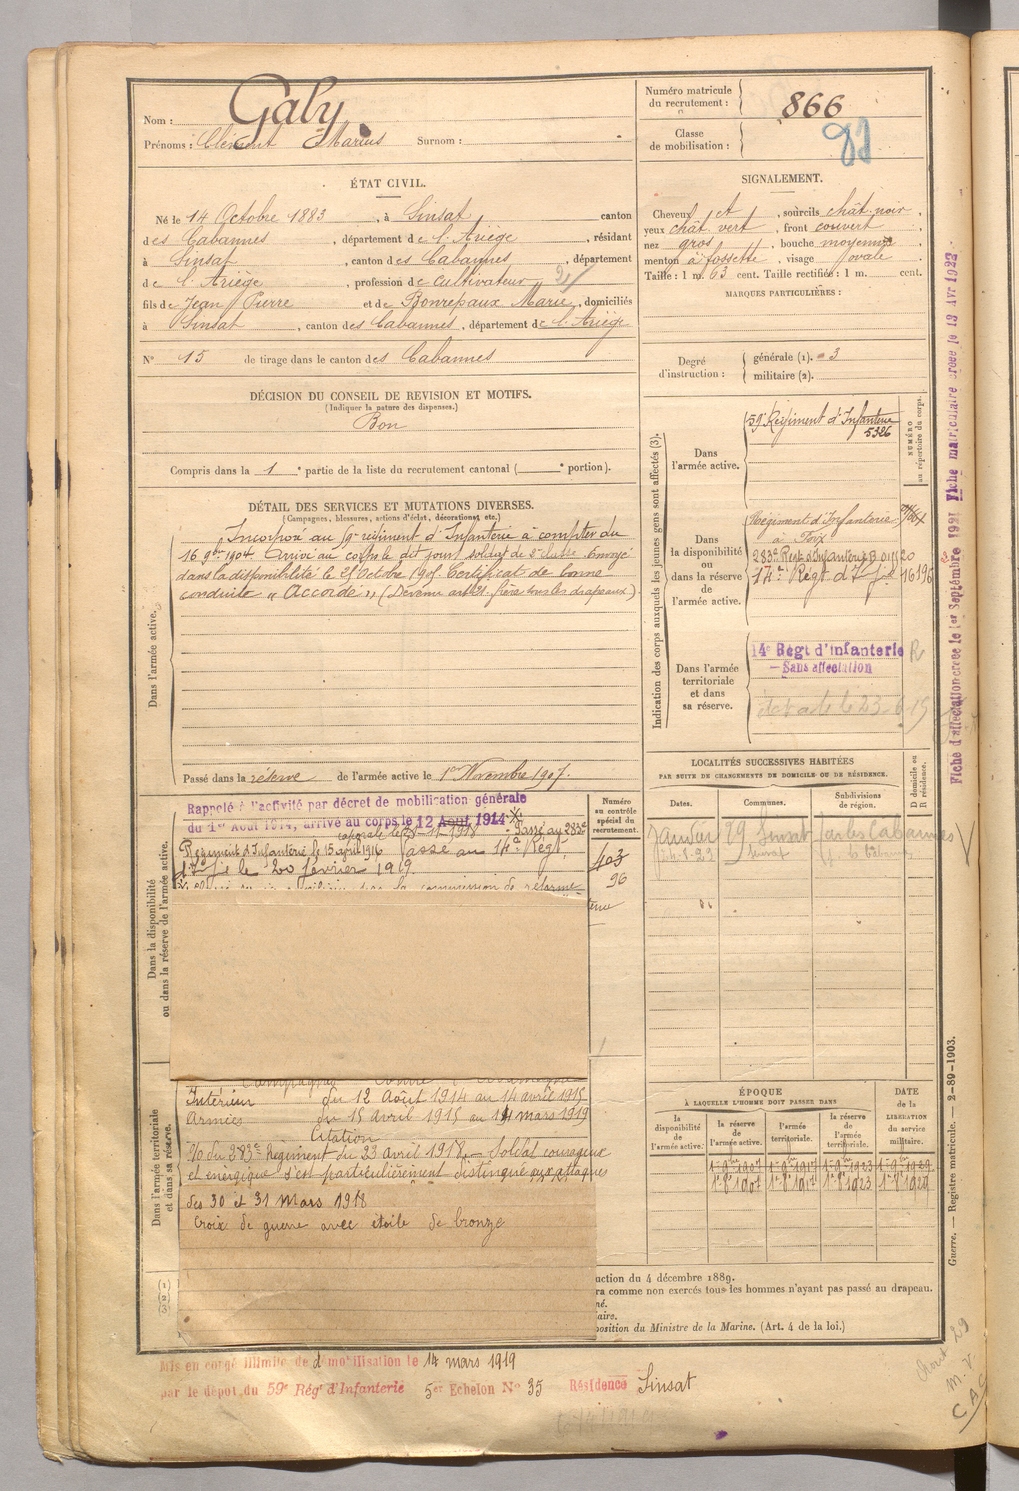 Nom : Galy
Prénoms : Clément Marius Surnom :
Numéro matricule du recrutement : 866
Classe de mobilisation :
ÉTAT CIVIL.
Né le 14 Octobre 1883, à Sinsat canton
des Cabannes, département de l'Ariège, résidant
à Sinsat, canton des Cabannes, département
de l'Ariège, profession de cultivateur
fils de Jean Pierre et de Bonrepaux Marie, domiciliés
à Sinsat, canton des Cabannes, département de l'Ariège
N° 15 de tirage dans le canton des Cabannes
SIGNALEMENT.
Cheveux et, sourcils chât. noir,
yeux chât. vert, front couvert,
nez gros, bouche moyenne
menton à fossette, visage ovale
Taille : 1 m. 63 cent. Taille rectifiée : 1 m. cent.
MARQUES PARTICULIÈRES :
Degré d'instruction : générale (1). 3
militaire (2).
DÉCISION DU CONSEIL DE REVISION ET MOTIFS.
(Indiquer la nature des dispenses.)
Bon
Compris dans la 1e partie de la liste du recrutement cantonal ( e portion).
DÉTAIL DES SERVICES ET MUTATIONS DIVERSES.
(Campagnes, blessures, actions d'éclat, décorations, etc.)
Dans l'armée active.
Incorporé au régiment d'Infanterie à compter du
16 9bre 1904. Arrivé au corps le dit jour soldat de 2e classe. Envoyé
dans la disponibilité le Octobre 1905. Certificat de bonne
conduite « Accordé » (Devenu frère sous les drapeaux)
Passé dans la réserve de l'armée active le 1er Novembre 1907.
Indication des corps auxquels les jeunes gens sont affectés (3).
NUMÉRO au répertoire du corps.
Dans l'armée active.
59e Régiment d'Infanterie
5326
Dans la disponibilité ou dans la réserve de l'armée active.
Régiment d'Infanterie
à Foix
283e Régt d'Infanterie
14e Régt d'Inf
Dans l'armée territoriale et dans sa réserve.
14e Régt d'Infanterie
Sans affectation
Fiche d'affectation créée le 1er Septembre 1921 Fiche matriculaire créée le 13 Avr 1922
LOCALITÉS SUCCESSIVES HABITÉES
PAR SUITE DE CHANGEMENTS DE DOMICILE OU DE RÉSIDENCE.
Dates. Communes. Subdivisions de région. D domicile ou R résidence.
Sinsat
Dans la disponibilité ou dans la réserve de l'armée active.
Numéro au contrôle spécial du recrutement.
403
96
Rappelé à l'activité par décret de mobilisation générale
du 1er Août 1914, arrivé au corps le 12 Août 1914
caporal le 1918 Passé au 283e
Régiment d'Infanterie le 15 avril 1916 Passé au 14e Régt
d'Inf le 20 février 1919.
commission de réforme
Dans l'armée territoriale et dans sa réserve.
Campagnes contre l'Allemagne
Intérieur du 12 Août 1914 au 14 avril 1915
Armées du 15 Avril 1915 au 14 mars 1919
Citation
du 283e Régiment du 23 Avril 1918. Soldat courageux
et énergique s'est particulièrement distingué aux attaques
des 30 et 31 Mars 1918
Croix de guerre avec étoile de bronze
ÉPOQUE
À LAQUELLE L'HOMME DOIT PASSER DANS
la disponibilité de l'armée active. la réserve de l'armée active. l'armée territoriale. la réserve de l'armée territoriale. DATE de la LIBÉRATION du service militaire.
(1)
(2)
(3)
uction du 4 décembre 1889.
ra comme non exercés tous les hommes n'ayant pas passé au drapeau.
né.
aire.
position du Ministre de la Marine. (Art. 4 de la loi.)
Guerre. — Registre matricule. — 2-89-1903.
Mis en congé illimité de démobilisation le 14 mars 1919
par le dépôt du 59e Rég' d'Infanterie 5er Echelon N° 35 Résidence Sinsat